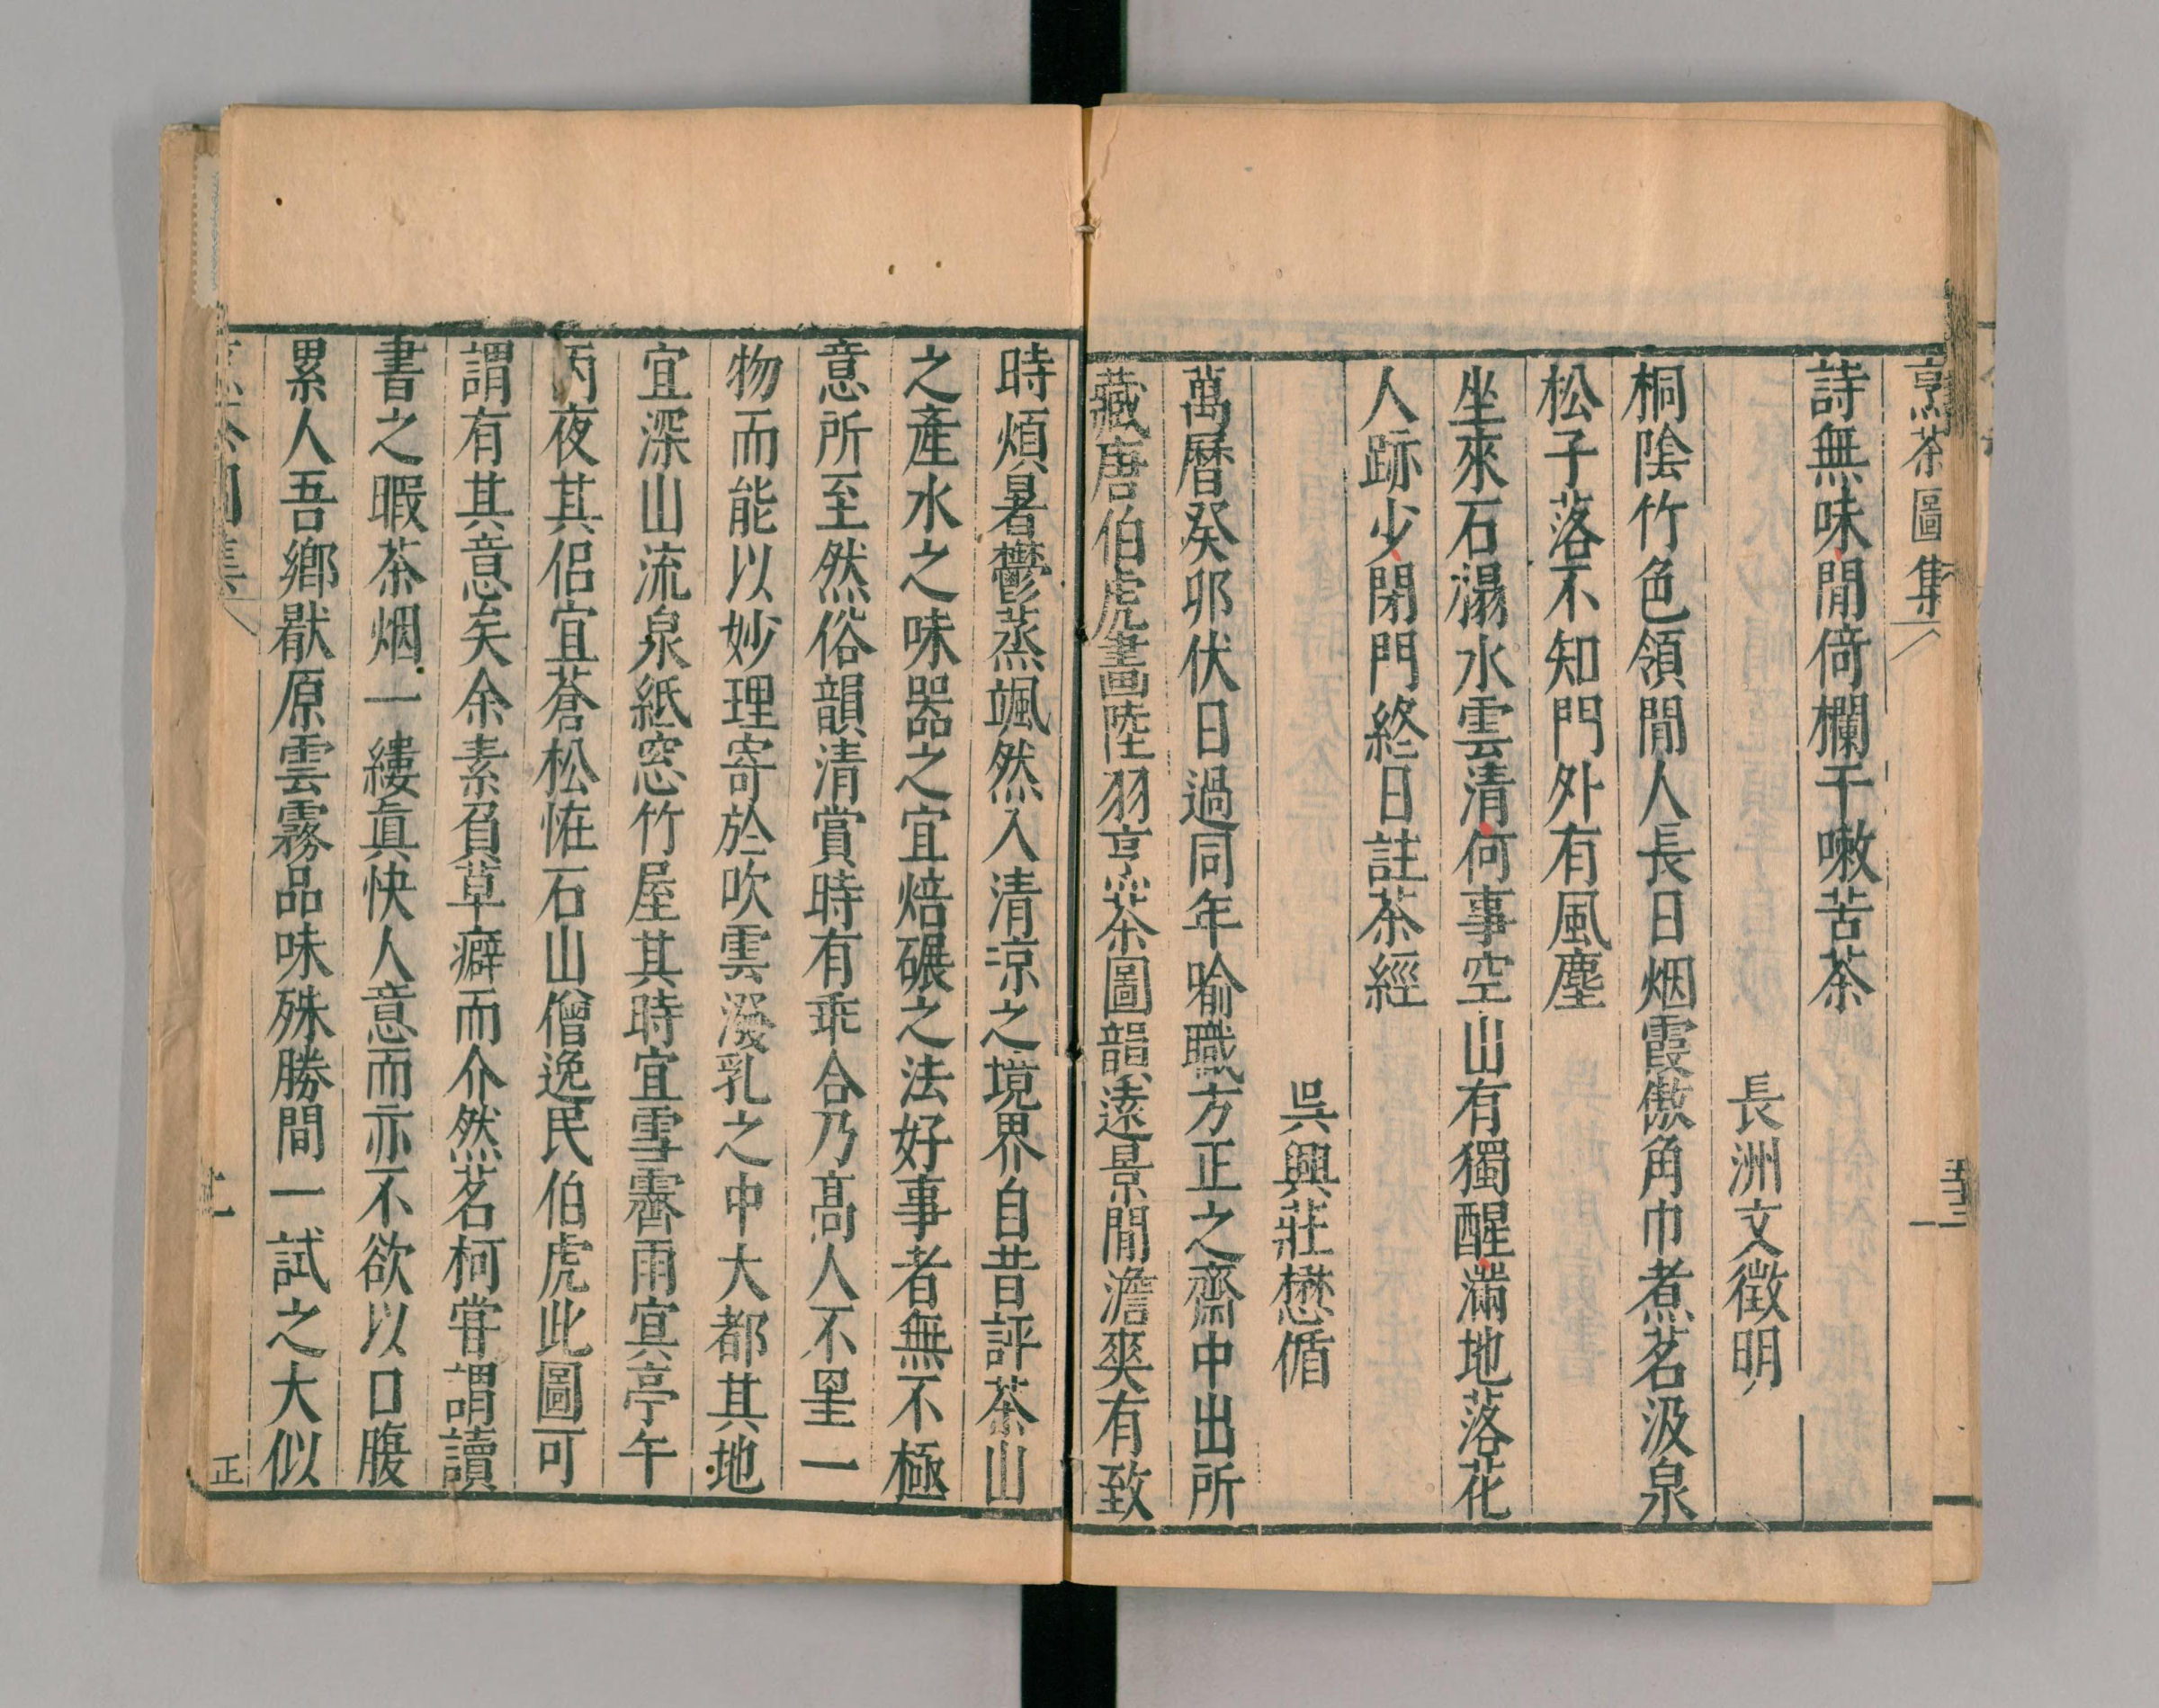 烹茶圖集
詩無味閒倚欄干嗽苦茶
長洲文徵明
桐陰竹色領閒人長日烟霞傲角巾煮茗汲泉
松子落不知門外有風塵
坐來石瀑水雲清何事空山有獨醒滿地落花
人跡少閉門終日註茶經
吳興莊懋循
萬曆癸卯伏日過同年喻職方正之齋中出所
藏唐伯虎畫陸羽烹茶圖韻遠景閒澹爽有致
時煩暑鬱蒸颯然入清涼之境界自昔評茶山
之產水之味器之宜焙碾之法好事者無不極
意所至然俗韻清賞時有乖合乃高人不呈一
物而能以妙理寄於吹雲潑乳之中大都其地
宜深山流泉紙窓竹屋其時宜雪霽雨㝠亭午
丙夜其侶宜蒼松恠石山僧逸民伯虎此圖可
謂有其意矣余素負草癖而介然茗柯甞謂讀
書之暇茶烟一縷眞快人意而亦不欲以口腹
累人吾鄉厭原雲霧品味殊勝間一試之大似
正